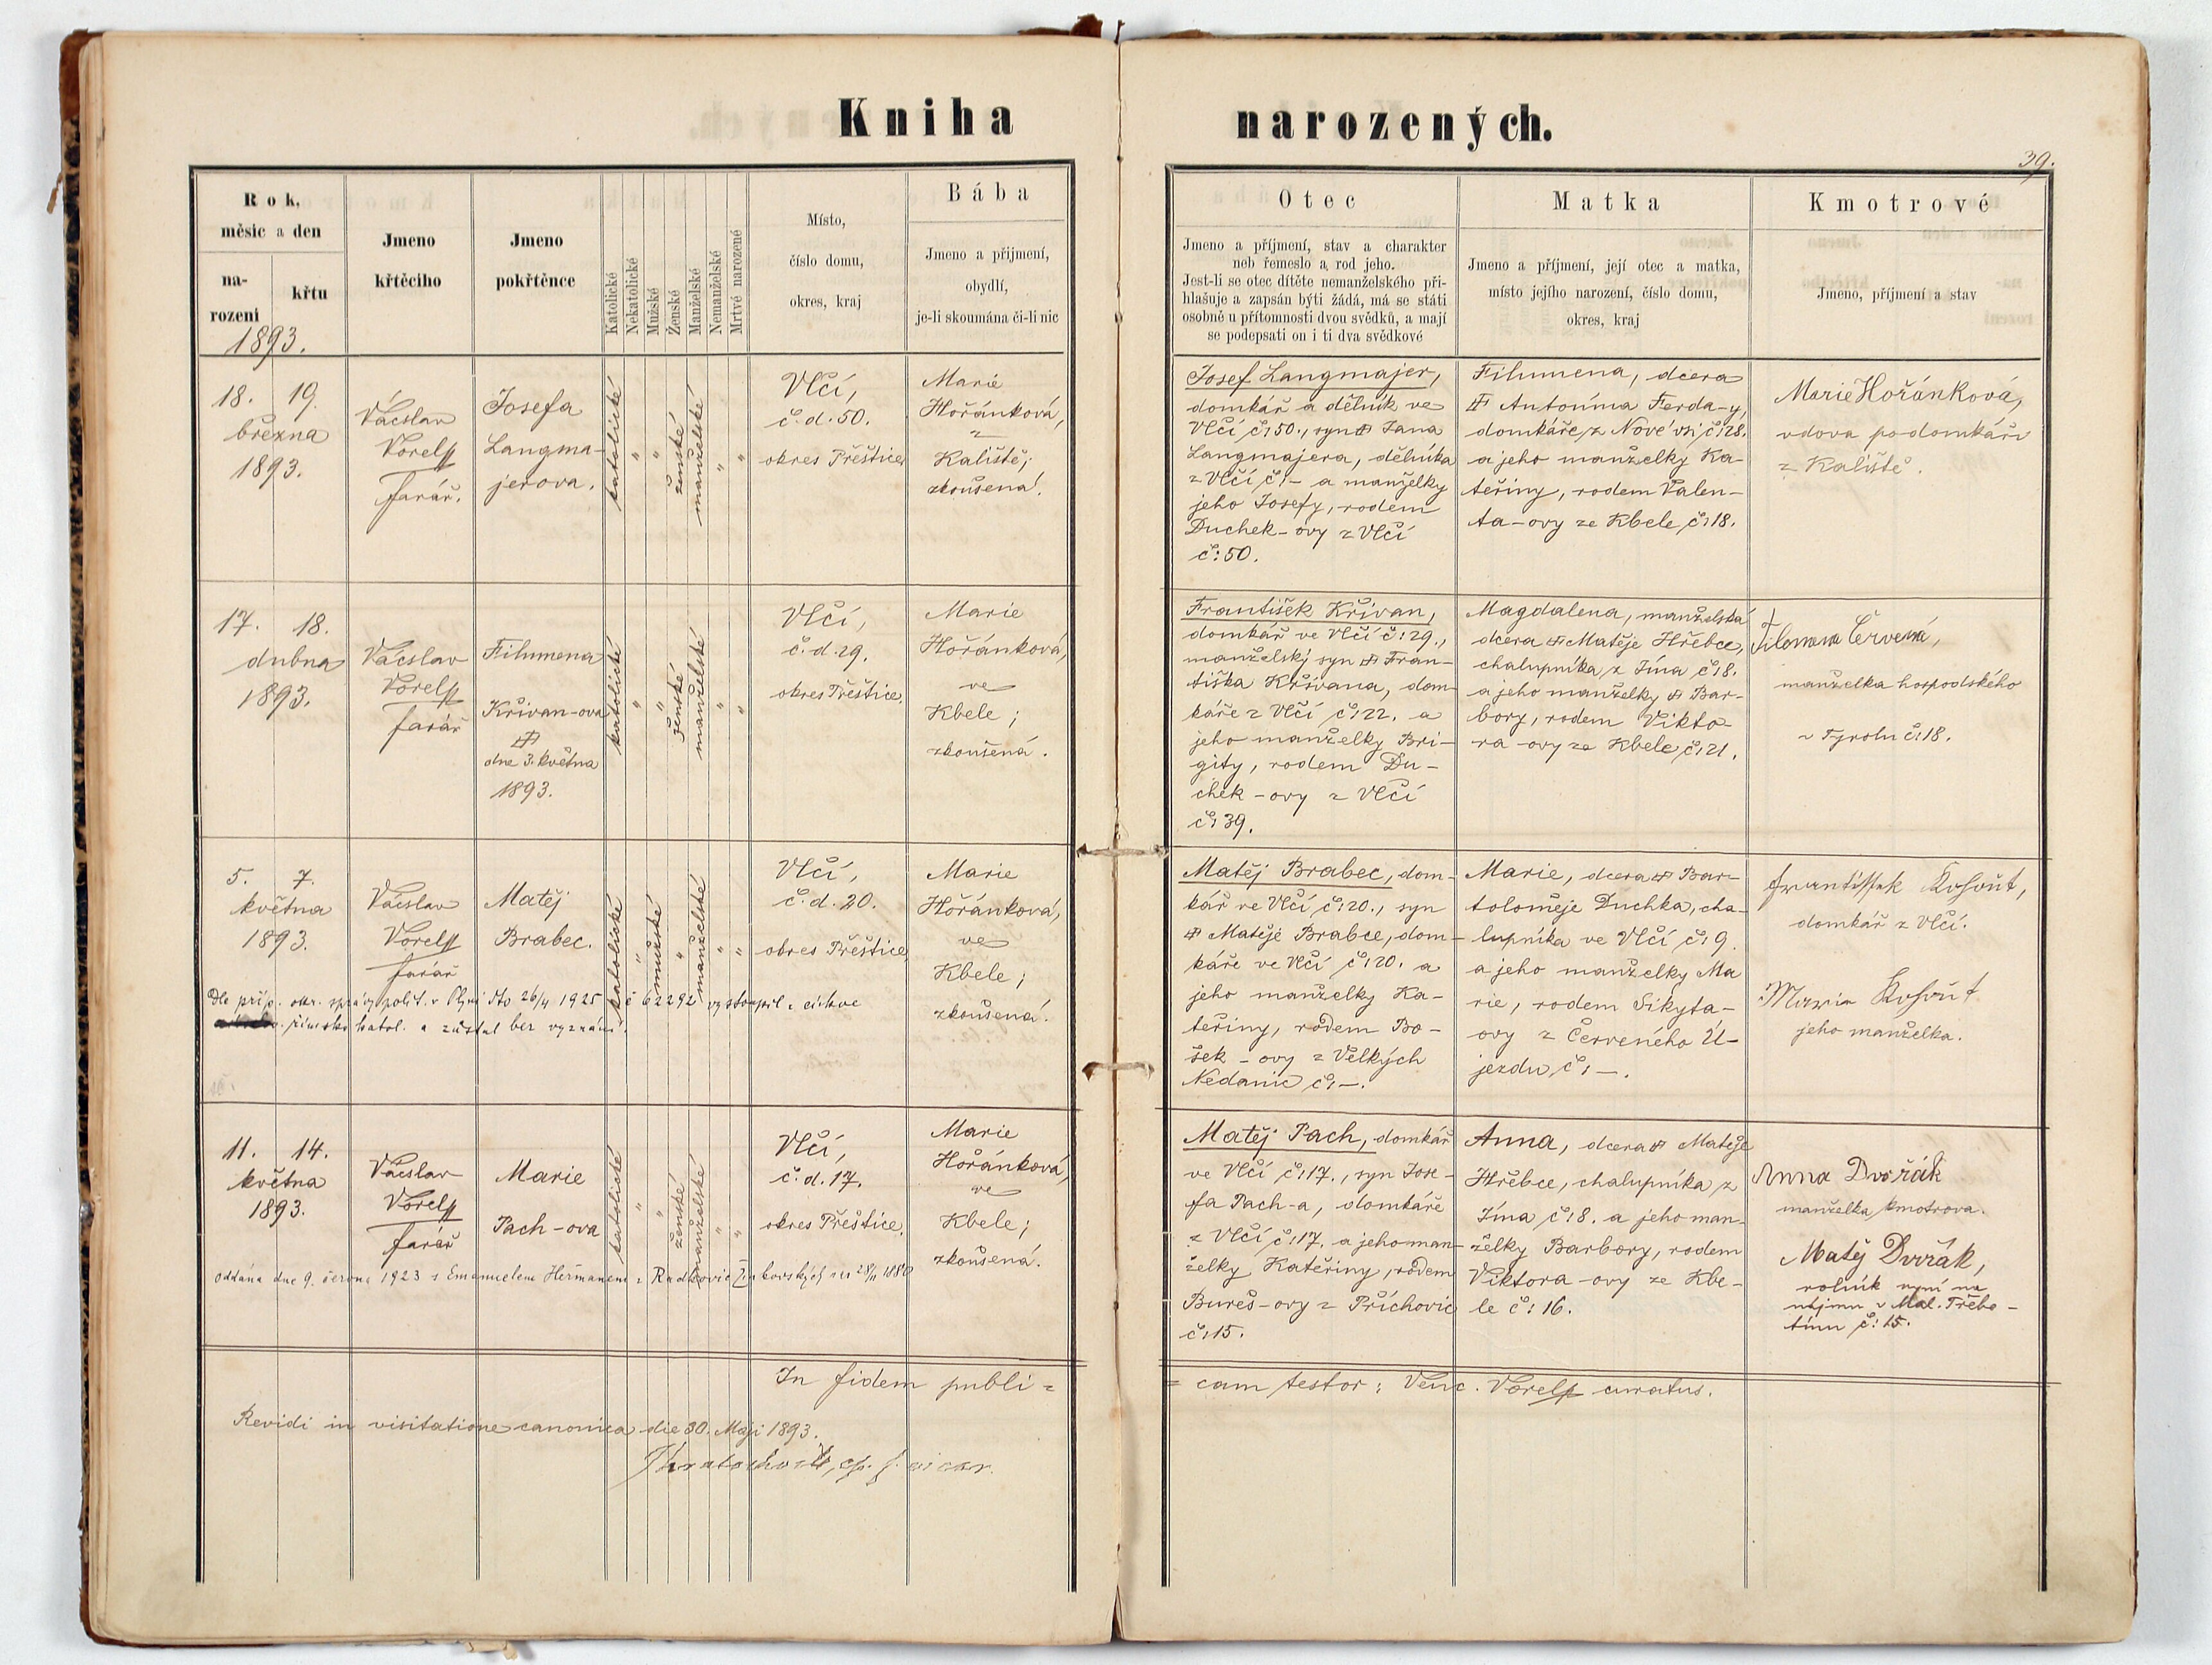 Kniha narozených.
39.
Rok, měsíc a den
na-
rození
křtu
1893.
Jmeno
křtěcího
Jmeno
pokřtěnce
Katolické
Nekatolické
Mužské
Ženské
Manželské
Nemanželské
Mrtvé narozené
Místo,
číslo domu,
okres, kraj
Bába
Jmeno a přijmení,
obydlí,
je-li skoumána či-li nic
Otec
Jmeno a příjmení, stav a charakter
neb řemeslo a rod jeho.
Jest-li se otec dítěte nemanželského při-
hlašuje a zapsán býti žádá, má se státi
osobně u přítomnosti dvou svědků, a mají
se podepsati on i ti dva svědkové
Matka
Jmeno a příjmení, její otec a matka,
místo jejího narození, číslo domu,
okres, kraj
Kmotrové
Jmeno, příjmení a stav
18. 19.
března
1893.
Václav
Vorel
farář.
Josefa
Langma-
jerova.
katolické
"
"
ženské
manželské
"
"
Vlčí,
č. d. 50.
okres Přeštice
Marie
Hořánková,
z
Kaliště;
zkoušená.
Josef Langmajer,
domkář a dělník ve
Vlčí č: 50., syn Jana
Langmajera, dělníka
z Vlčí č: — a manželky
jeho Josefy, rodem
Duchek-ovy z Vlčí
č: 50.
Filumena, dcera
Antonína Ferda-y,
domkáře z Nové vsi č: 28.
a jeho manželky Ka-
teřiny, rodem Valen-
ta-ovy ze Kbele č: 18.
Marie Hořánková,
vdova po domkáři
z Kaliště.
17. 18.
dubna
1893.
Václav
Vorel
farář
Filumena
Křivan-ova
dne 3. května
1893.
katolické
"
"
ženské
manželské
"
"
Vlčí,
č. d. 29.
okres Přeštice.
Marie
Hořánková,
ve
Kbele;
zkoušená.
František Křivan,
domkář ve Vlčí č: 29.,
manželský syn Fran-
tiška Křivana, dom-
káře z Vlčí č: 22. a
jeho manželky Bri-
gity, rodem Du-
chek-ovy z Vlčí
č: 39.
Magdalena, manželská
dcera Matěje Hřebce,
chalupníka z Jína č: 8.
a jeho manželky Bar-
bory, rodem Vikto-
ra-ovy ze Kbele č: 21.
Filomena Červená,
manželka hospodského
v Tyrolu č: 18.
5. 7.
května
1893.
Václav
Vorel
farář
Matěj
Brabec.
katolické
"
mužské
"
manželské
"
"
Vlčí,
č. d. 20.
okres Přeštice,
Marie
Hořánková,
ve
Kbele;
zkoušená.
Dle příp. okr. správy polit. v Plzni dto 26/4 1925 č 62292 vystoupil z církve
římsko katol. a zůstal bez vyznání.
Matěj Brabec, dom-
kář ve Vlčí č: 20., syn
Matěje Brabce, dom-
káře ve Vlčí č: 20. a
jeho manželky Ka-
teřiny, rodem Bo-
šek-ovy z Velkých
Nedanic č: —.
Marie, dcera Bar-
toloměje Duchka, cha-
lupníka ve Vlčí č: 9.
a jeho manželky Ma
rie, rodem Sikyta-
ovy z Červeného Ú-
jezdu č: —.
František Kohout,
domkář z Vlčí.
Marie Kohout
jeho manželka.
11. 14.
května
1893.
Václav
Vorel
farář
Marie
Pach-ova
katolické
"
"
ženské
manželské
"
"
Vlčí,
č. d. 17.
okres Přeštice.
Marie
Hořánková,
ve
Kbele;
zkoušená.
oddána dne 9. června 1923 s Emanuelem Heřmanem z Radkovic
Matěj Pach, domkář
ve Vlčí č: 17., syn Jose-
fa Pach-a, domkáře
z Vlčí č: 17. a jeho man-
želky Kateřiny, rodem
Bureš-ovy z Příchovic
č: 15.
Anna, dcera Matěje
Hřebce, chalupníka z
Jína č: 8. a jeho man-
želky Barbory, rodem
Viktora-ovy ze Kbe-
le č: 16.
Anna Dvořák
manželka kmotrova.
Matěj Dvořák,
rolník nyní na
nájmu v Mal. Třebo-
tínu č: 15.
In fidem publi=
=cam testor: Venc. Vorel curatus.
Revidi in visitatione canonica die 30. Maji 1893.